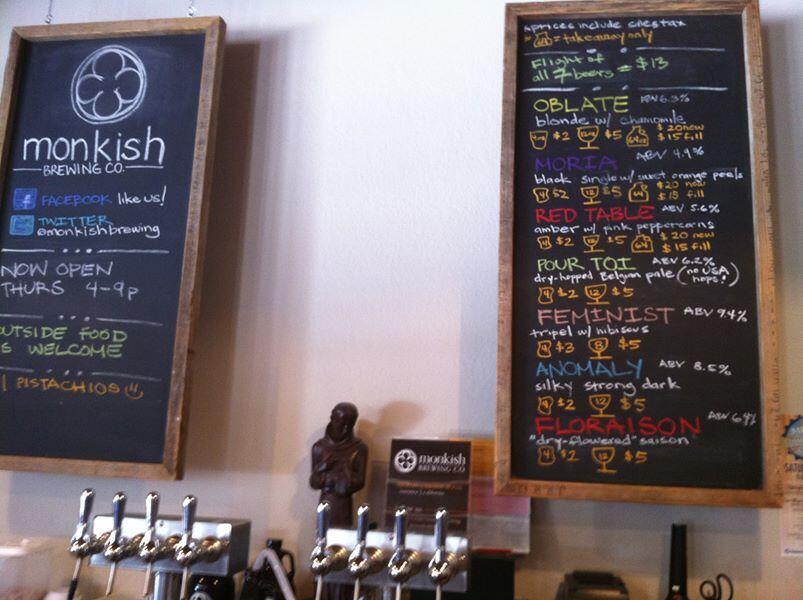 monkish
BREWING CO.
FACEBOOK like us!
TWITTER
@monkishbrewing
NOW OPEN
THURS 4-9p
OUTSIDE FOOD
IS WELCOME
PISTACHIOS
prices include sales tax
64 = takeaway only
Flight of
all 7 beers = $13
OBLATE ABV 6.3%
blonde w/ chamomile
4oz $2 12oz $5 64oz $20 new
$15 fill
MORIA ABV 4.9%
black single w/ sweet orange peels
4 $2 12 $5 64 $20 new
$15 fill
RED TABLE ABV 5.6%
amber w/ pink peppercorns
4 $2 12 $5 64 $20 new
$15 fill
POUR TOI ABV 6.2%
dry-hopped Belgian pale (no USA hops!)
4 $2 12 $5
FEMINIST ABV 9.4%
tripel w/ hibiscus
4 $3 8 $5
ANOMALY ABV 8.5%
silky strong dark
4 $2 12 $5
FLORAISON ABV 6.4%
"dry-flowered" saison
4 $2 12 $5
monkish
BREWING CO.